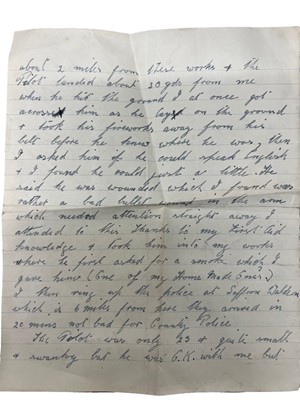 about 2 miles from these works & the
Pilot landed about 20 yds from me
when he hit the ground I at once got
across him as he lay on the ground
& took his fireworks away from his
belt before he knew where he was, then
I asked him if he could speak English
& I found he could just a little. He
said he was wounded which I found was
rather a bad bullet wound in the arm
which needed attention straight away I
attended to this thanks to my First Aid
knowledge & took him into my works
where he first asked for a smoke which I
gave him (One of my Home Made Ones.)
I then rung up the police at Saffron Walden
which is 6 miles from here they arrived in
20 mins not bad for County Police.
The Pilot was only 23 & quite small
& swanky but he was O.K. with me but